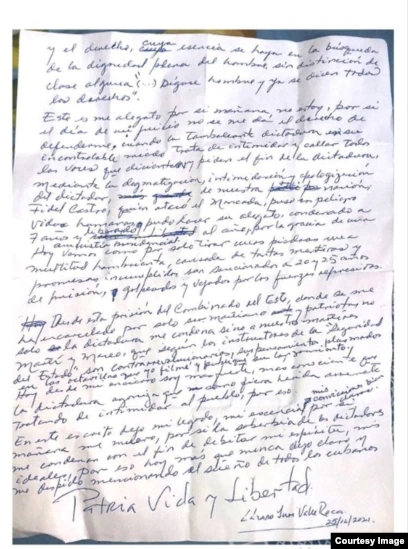 y el derecho, cuya esencia se haya en la búsqueda
de la dignidad plena del hombre, sin distinción de
clase alguna "(...) Dígase hombre y ya se dicen todos
los derechos".
Este es mi alegato por si mañana no estoy, por si
el día de mi juicio no se me da el derecho de
defenderme, cuando la tambaleante dictadura en su
incontrolable miedo trata de intimidar y callar todas
las voces que disienten y piden el fin de la dictadura.
Mediante la dogmatización, intimidación y apologización
del dictador, de nuestra nación,
Fidel Castro, quien atacó el Moncada, puso en peligro
vidas humanas, pudo hacer su alegato, condenado a
7 años y al año, por la gracia de una
amnistía
Hoy vemos como por solo tirar unas piedras una
multitud hambrienta, cansada de tantas mentiras y
promesas incumplidas son sancionados a 20 y 25 años
de prisión, golpeados y vejados por las fuerzas represoras.
Desde esta prisión del Combinado del Este, donde se me
ha encarcelado por solo ser martiano y patriota, no
solo a mí la dictadura me condena sino a nuestros
Martí y Maceo, que según los instructores de la "Seguridad
del Estado" son contrarrevolucionarios, sus pensamientos,
Hoy desde mi encierro soy más fuerte, mas consciente que
la dictadura agoniza como fiera herida
tratando de intimidar al pueblo, por eso mis
En este escrito dejo mi legado, mi esencia,
mañana me muero, por si la soberbia de los dictadores
me condenan con el fin de debilitar mi espíritu, mis
ideales, por eso hoy más que nunca dejo claro y
me despido mencionando el sueño de todos los cubanos
Patria Vida y Libertad.
25/12/2021.
Courtesy Image